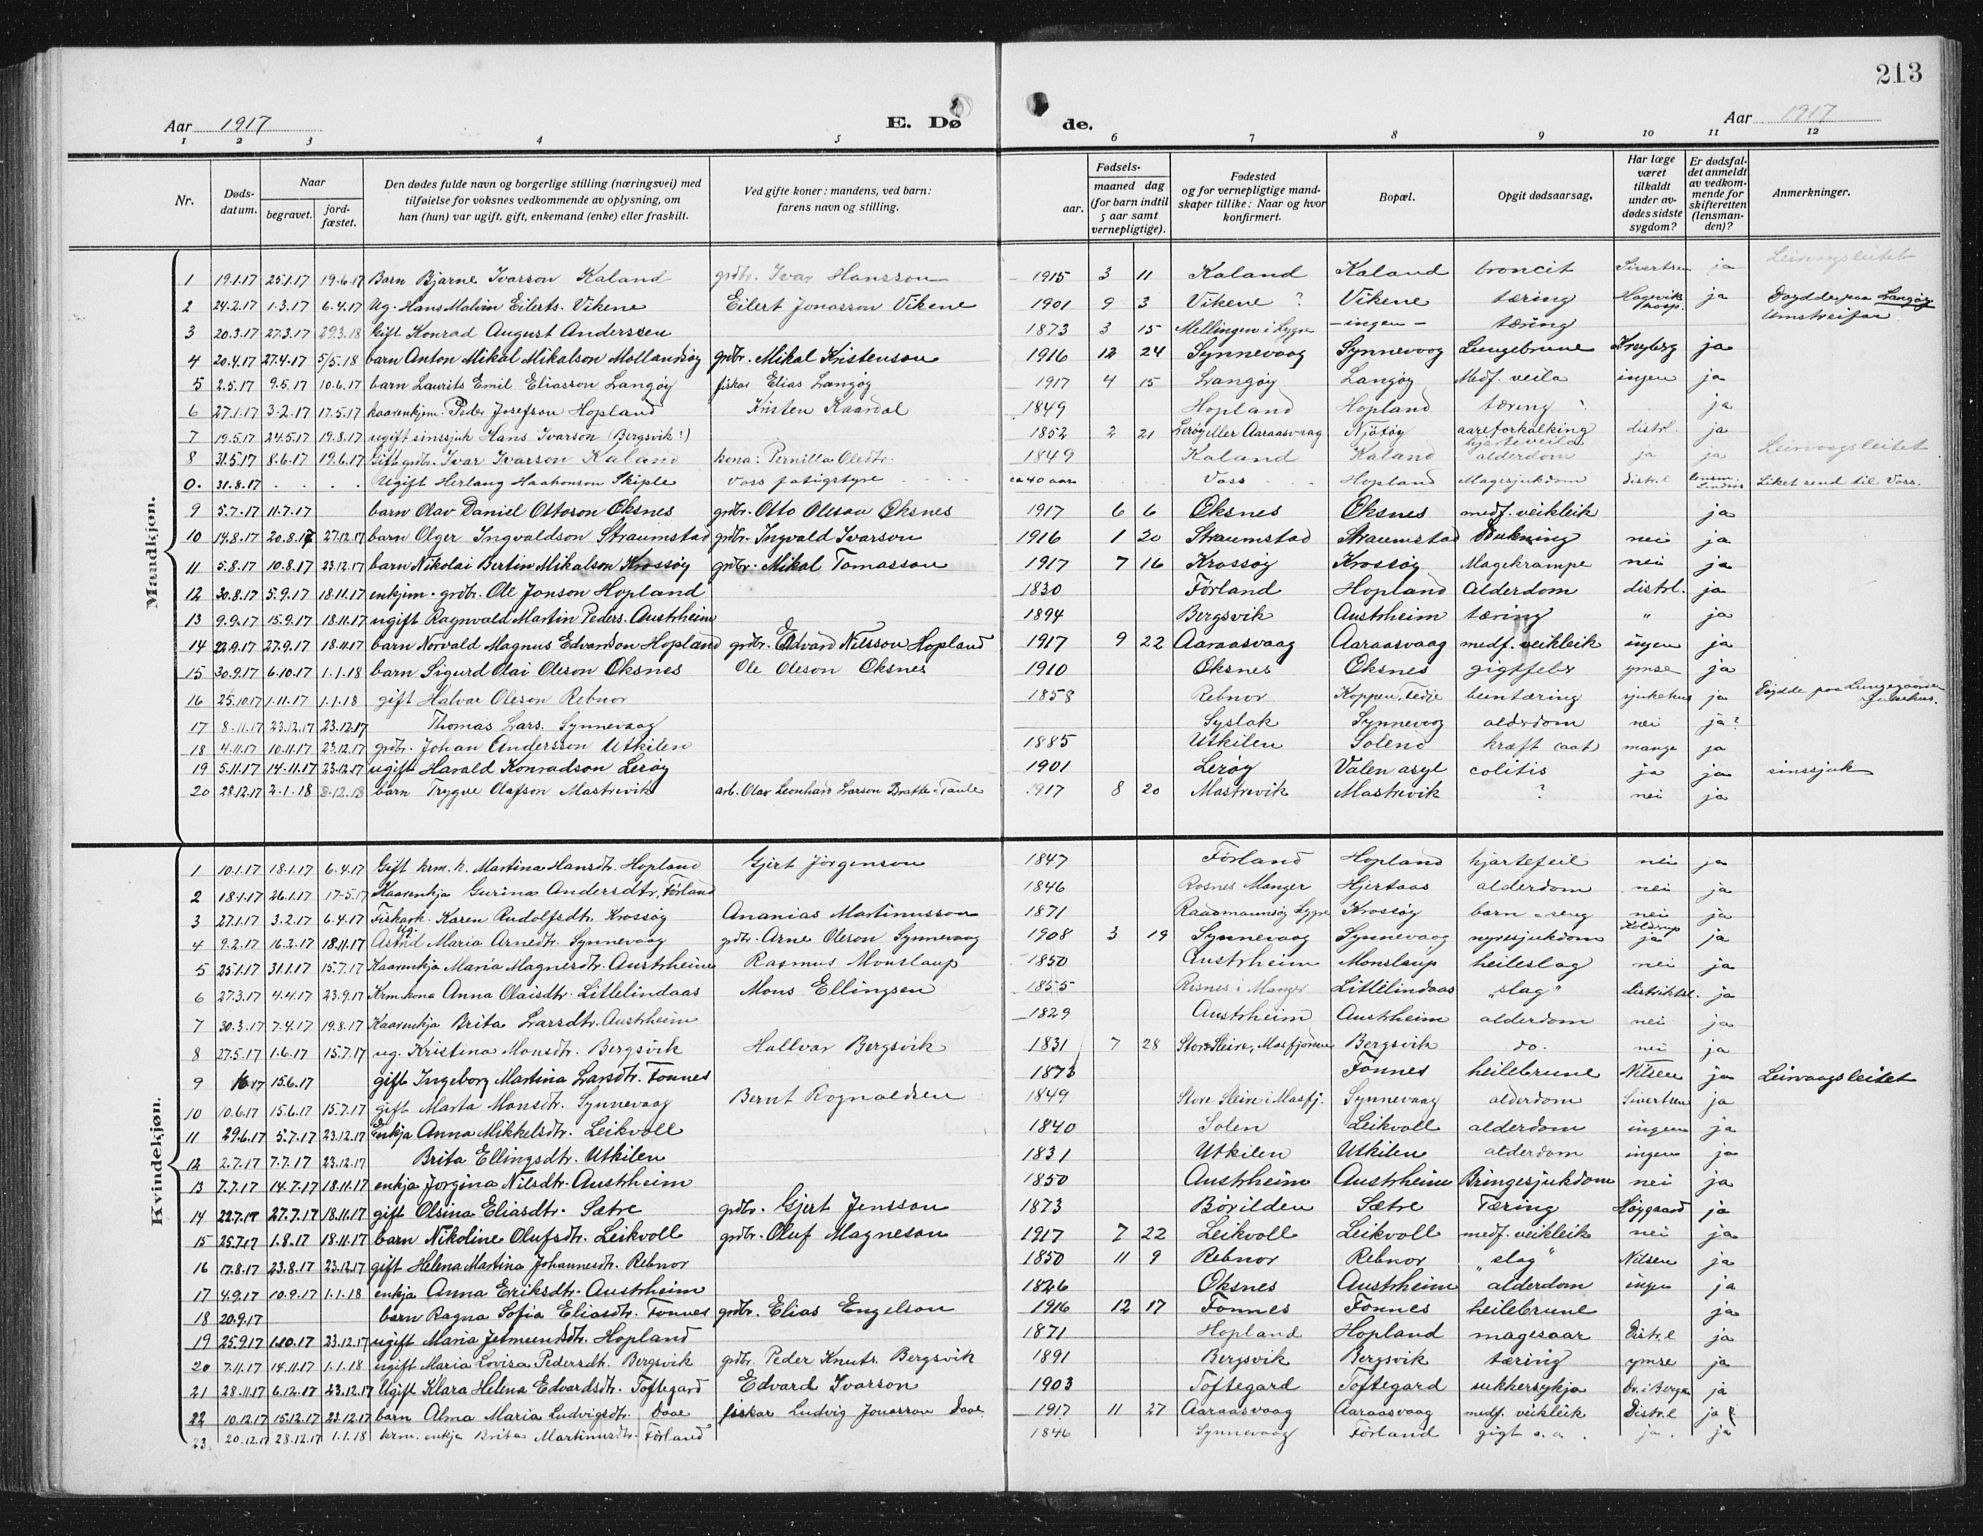 213
Aar 1917 E. Dø de. Aar 1917
1 2 3 4 5 6 7 8 9 10 11 12
Nr. Døds-datum. Naar begravet. jord-fæstet. Den dødes fulde navn og borgerlige stilling (næringsvei) med tilføielse for voksnes vedkommende av oplysning, om han (hun) var ugift, gift, enkemand (enke) eller fraskilt. Ved gifte koner: mandens, ved barn: farens navn og stilling. Fødsels- aar. maaned dag (for barn indtil 5 aar samt vernepligtige). Fødested og for vernepligtige mandskaper tillike: Naar og hvor konfirmert. Bopæl. Opgit dødsaarsag. Har læge været tilkaldt under avdødes sidste sygdom? Er dødsfaldet anmeldt av vedkommende for skifteretten (lensmanden)? Anmerkninger.
Mandkjøn.
1 19.1.17 25.1.17 19.6.17 Barn Bjarne Ivarson Kaland grdbr. Ivar Hansson 1915 3 11 Kaland Kaland broncit Sivertsen ja Leirvaagsleitet
2 24.2.17 1.3.17 6.4.17 Ug. Hans Malvin Eilerts. Vikene Eilert Jonasson Vikene 1901 9 3 Vikene ? Vikene tæring Hagevik hosp. ja Døydde paa Langøy
3 20.3.17 27.3.17 29.3.18 Gift Konrad August Anderssen 1873 3 15 Mellingen i Lygre - ingen - tæring Umstreifar
4 20.4.17 27.4.17 5/5.18 barn Anton Mikal Mikalson Mollandsøy grdbr. Mikal Kristenson 1916 12 24 Synnevaag Synnevaag Lungebrune Kreyberg ja
5 2.5.17 9.5.17 10.6.17 barn Laurits Emil Eliasson Langøy fiskar Elias Langøy 1917 4 15 Langøy Langøy Medf. veila ingen ja
6 27.1.17 3.2.17 17.5.17 kaarenkjem. Peder Josefson Hopland Kristen Kaardal 1849 Hopland Hopland tæring ja
7 19.5.17 24.5.17 19.8.17 ugift sinssjuk Hans Ivarson (Bergsvik?) 1852 2 21 Lerøy eller Aaraasvaag Njøtøy aareforkalking hjarteveila distrl. ja
8 31.5.17 8.6.17 19.6.17 Gift grdbr. Ivar Ivarson Kaland kona: Pernilla Olesdtr. 1849 Kaland Kaland alderdom ja ja Leirvaagsleitet
0. 31.8.17 Ugift Herlaug Haakonson Skiple Voss fatigstyre ca 40 aar Voss Hopland Magesjukdom distr.l lensm. Liket send til Voss.
9 5.7.17 11.7.17 barn Olav Daniel Ottoson Øksnes grdbr. Otto Oleson Øksnes 1917 6 6 Øksnes Øksnes medf. veikleik ja
10 14.8.17 20.8.17 27.12.17 barn Olger Ingvaldson Straumstad grdbr. Ingvald Ivarson 1916 1 20 Straumstad Straumstad Drukning nei ja
11 5.8.17 10.8.17 23.12.17 barn Nikolai Bertin Mikalson Krossøy grdbr. Mikal Tomasson 1917 7 16 Krossøy Krossøy Magekrampe nei ja
12 30.8.17 5.9.17 18.11.17 enkjem. grdbr. Ole Jonson Hopland 1830 Førland Hopland Alderdom distrl. ja
13 9.9.17 15.9.17 18.11.17 ugift Ragnvald Martin Peders. Austrheim 1894 Bergsvik Austrheim tæring " ja
14 22.9.17 27.9.17 18.11.17 barn Norvald Magnus Edvardson Hopland grdbr. Edvard Nilsson Hopland 1917 9 22 Aaraasvaag Aaraasvaag medf. veikleik ingen ja
15 30.9.17 6.10.17 1.1.18 barn Sigurd Olai Oleson Øksnes Ole Oleson Øksnes 1910 Øksnes Øksnes gigtfeber ymse ja
16 25.10.17 1.11.17 1.1.18 gift Halvar Oleson Rebnor 1858 Rebnor Koppen, Fedje beintæring sjukehus ja Døydde paa Lungegaarden sjukehus.
17 8.11.17 23.12.17 23.12.17 Thomas Lars. Synnevaag Syslak Synnevaag alderdom nei ja?
18 4.11.17 10.11.17 23.12.17 grdbr. Johan Andersson Utkilen 1885 Utkilen Solend kræft (aat) mange ja
19 5.11.17 14.11.17 23.12.17 ugift Harald Konradson Lerøy 1901 Lerøy Valen asyl colitis ja ja sinssjuk
20 28.12.17 2.1.18 8.12.18 barn Trygve Olafson Mastrevik arb. Olav Leonhard Larson Bratte-Taule 1917 8 20 Mastrevik Mastrevik ? nei ja
Kvindekjøn.
1 10.1.17 18.1.17 6.4.17 Gift krm. k. Martina Hansdtr. Hopland Gjert Jørgenson 1847 Førland Hopland hjartefeil nei ja
2 18.1.17 26.1.17 17.5.17 Kaarenkja Gurina Andersdtr. Førland 1846 Rosnes Manger Hjertaas alderdom nei ja
3 27.1.17 3.2.17 6.4.17 Fiskark. Karen Rudolfsdtr. Krossøy Ananias Martinusson 1871 Raadmannsøy Lygre Krossøy barnseng nei ja
4 9.2.17 16.2.17 18.11.17 Ug. Astrid Maria Arnedtr. Synnevaag grdbr. Arne Oleson Synnevaag 1908 3 19 Synnevaag Synnevaag nyresjukdom Koldrup ja ja
5 25.1.17 31.1.17 15.7.17 Kaarenkja Maria Magnesdtr. Austrheim Rasmus Monslaup 1850 Austrheim Monslaup heileslag nei ja
6 27.3.17 4.4.17 23.9.17 Krm.kona Anna Olaisdtr. Litlelindaas Mons Ellingsen 1855 Risnes i Manger Litlelindaas „slag" distriktsl. ja
7 30.3.17 7.4.17 19.8.17 Kaarenkja Brita Larsdtr. Austrheim 1829 Austrheim Austrheim alderdom nei ja
8 27.5.17 1.6.17 15.7.17 ug. Kristina Monsdtr. Bergsvik Hallvar Bergsvik 1831 7 28 Store Steine, Masfjorden Bergsvik do. nei ja
9 15.6.17 gift Ingeborg Martina Larsdtr. Fonnes 1873 Fonnes heilebrune Nilsen ja Leirvaagsleitet
10 10.6.17 15.6.17 15.7.17 gift Marta Monsdtr. Synnevaag Bernt Rognaldsen 1849 Store Steine i Masfj. Synnevaag alderdom Sivertsen ja
11 29.6.17 5.7.17 23.12.17 Enkja Anna Mikkelsdtr. Leikvoll 1840 Solen Leikvoll alderdom ingen ja
12 2.7.17 7.7.17 23.12.17 Brita Ellingsdtr. Utkilen 1831 Utkilen Utkilen alderdom ingen ja
13 7.7.17 14.7.17 18.11.17 enkja Jorgina Nilsdtr. Austrheim 1850 Austrheim Austrheim Bringesjukdom nei ja
14 22.7.17 27.7.17 18.11.17 gift Olsina Eliasdtr. Sætre grdbr. Gjert Jensson 1873 Børilden Sætre Tæring Høygaard ja
15 25.7.17 1.8.17 18.11.17 barn Nikoline Olufsdtr. Leikvoll grdbr. Oluf Magneson 1917 7 22 Leikvoll Leikvoll medf. veikleik nei ja
16 17.8.17 23.8.17 23.12.17 gift Helena Martina Johannesdtr. Rebnor 1850 11 9 Rebnor Rebnor „slag" Nilsen ja
17 4.9.17 10.9.17 1.1.18 enkja Anna Eriksdtr. Austrheim 1826 Øksnes Austrheim alderdom ingen ja
18 20.9.17 barn Ragna Sofia Eliasdtr. Fonnes grdbr. Elias Engelson 1916 12 17 Fonnes Fonnes heilebrune ja
19 25.9.17 1.10.17 23.12.17 ugift Maria Jetmundsdtr. Hopland 1871 Hopland Hopland magesaar Distr.l ja
20 7.11.17 14.11.17 1.1.18 ugift Maria Lovisa Pedersdtr. Bergsvik grdbr. Peder Knuts. Bergsvik 1891 Bergsvik Bergsvik tæring ymse ja
21 28.11.17 6.12.17 23.12.17 Ugift Klara Helena Edvardsdtr. Toftegard Edvard Ivarson 1903 Toftegard Toftegard sukkersykja Dr. i Bergen ja
22 10.12.17 15.12.17 23.12.17 barn Alma Maria Ludvigsdtr. Daae fiskar Ludvig Jonasson Daae 1917 11 27 Aaraasvaag Aaraasvaag medf. veikleik Distr.l ja
23. 20.12.17 28.12.17 1.1.18 krm. enkja Brita Martinusdtr. Førland 1846 Synnevaag Førland gigt s.a. ja. ja